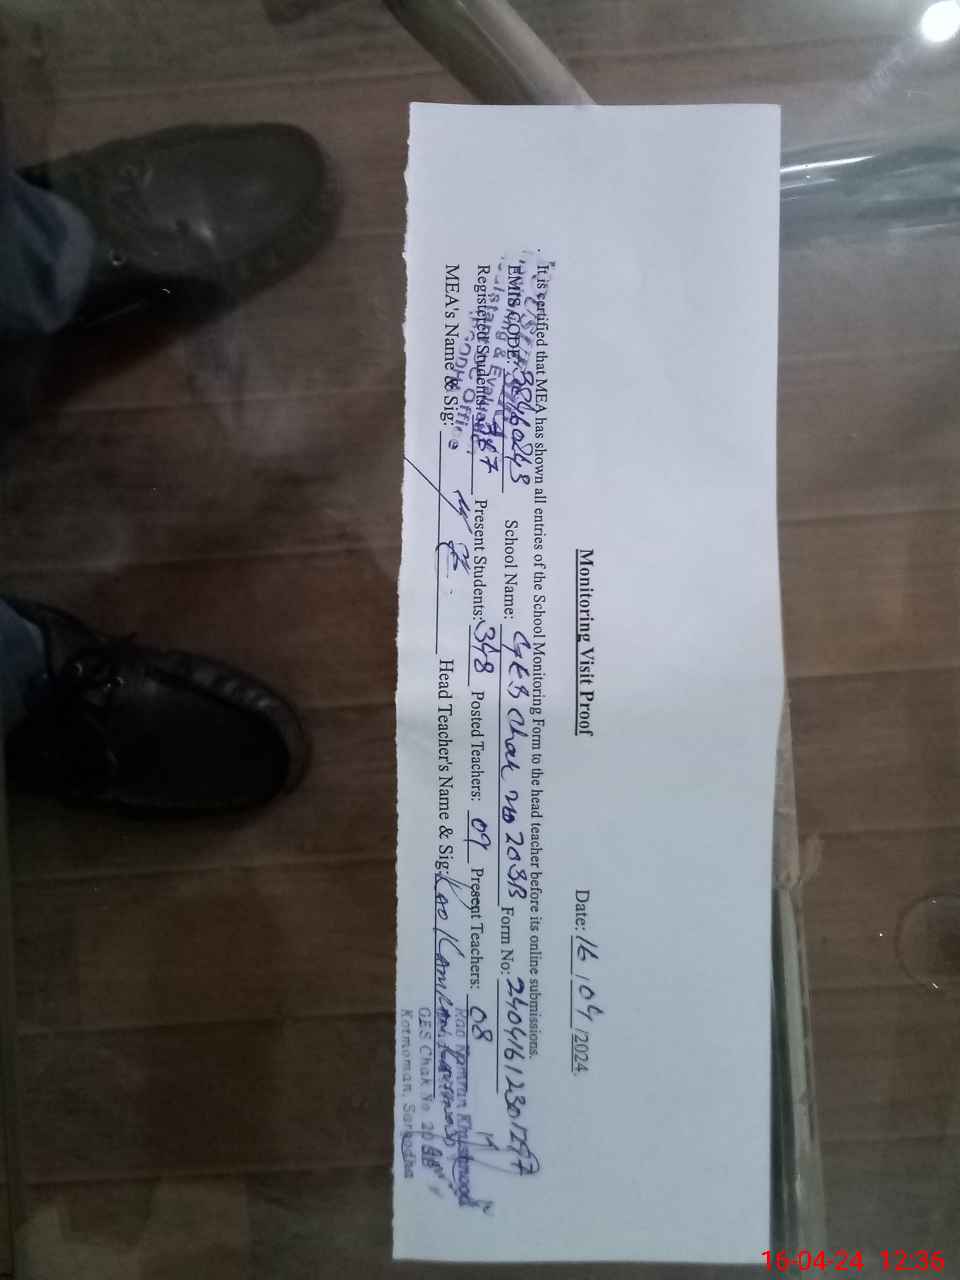 Monitoring Visit Proof
Date: 16/04/2024.
It is certified that MEA has shown all entries of the School Monitoring Form to the head teacher before its online submissions.
EMIS CODE: 38460248 School Name: GES Chak No 203B Form No: 24041612301297
Registered Students: 387 Present Students: 348 Posted Teachers: 09 Present Teachers: 08
MEA's Name & Sig: Head Teacher's Name & Sig: Rao Kamran
Rao Kamran
GES Chak No. 20
Kotmoman, Sargodha
16-04-24 12:36